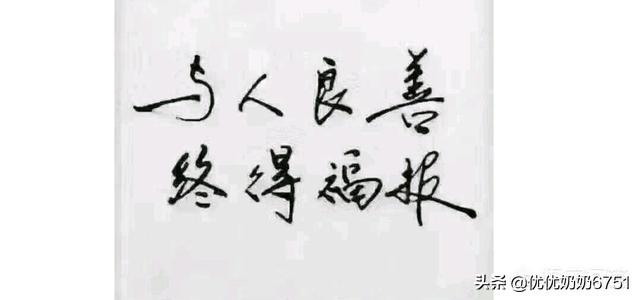 与人良善
终得福报
头条 @优优奶奶6751